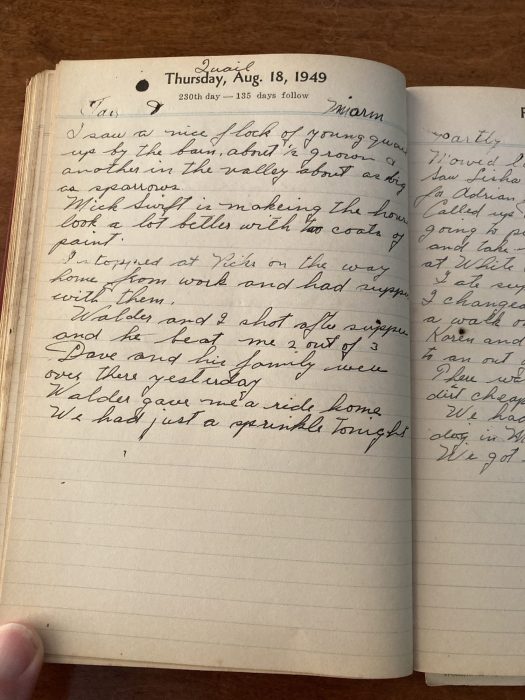 Quail
Thursday, Aug. 18, 1949
230th day — 135 days follow
warm
I saw a nice flock of young quail
up by the barn, about ½ grown &
another in the valley about as big
as sparrows.
Mick Swift is makeing the house
look a lot better with two coats of
paint.
I stopped at on the way
home from work and had supper
with them.
Walder and I shot after supper
and he beat me 2 out of 3
Dave and his family were
over there yesterday
Walder gave me a ride home
We had just a sprinkle tonight
partly
Mowed
Saw
for Adrian
Called up
going to
and take
at White
I ate
I changed
a walk
Karen and
to an out
There
dirt cheap
We had
dog in
We got